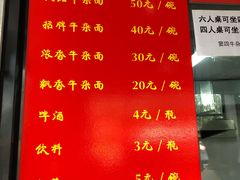 50元/碗
招牌牛杂面 40元/碗
浓香牛杂面 30元/碗
飘香牛杂面 20元/碗
啤酒 4元/瓶
饮料 3元/瓶
5元/碗
六人桌可坐
四人桌可坐